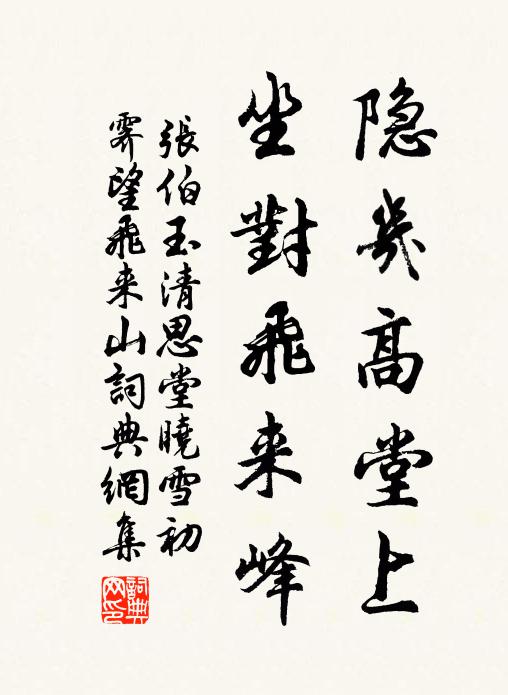 隐幾高堂上
坐對飛来峰
張伯玉清思堂曉雪初
霽望飛来山詞典網集
詞典網印